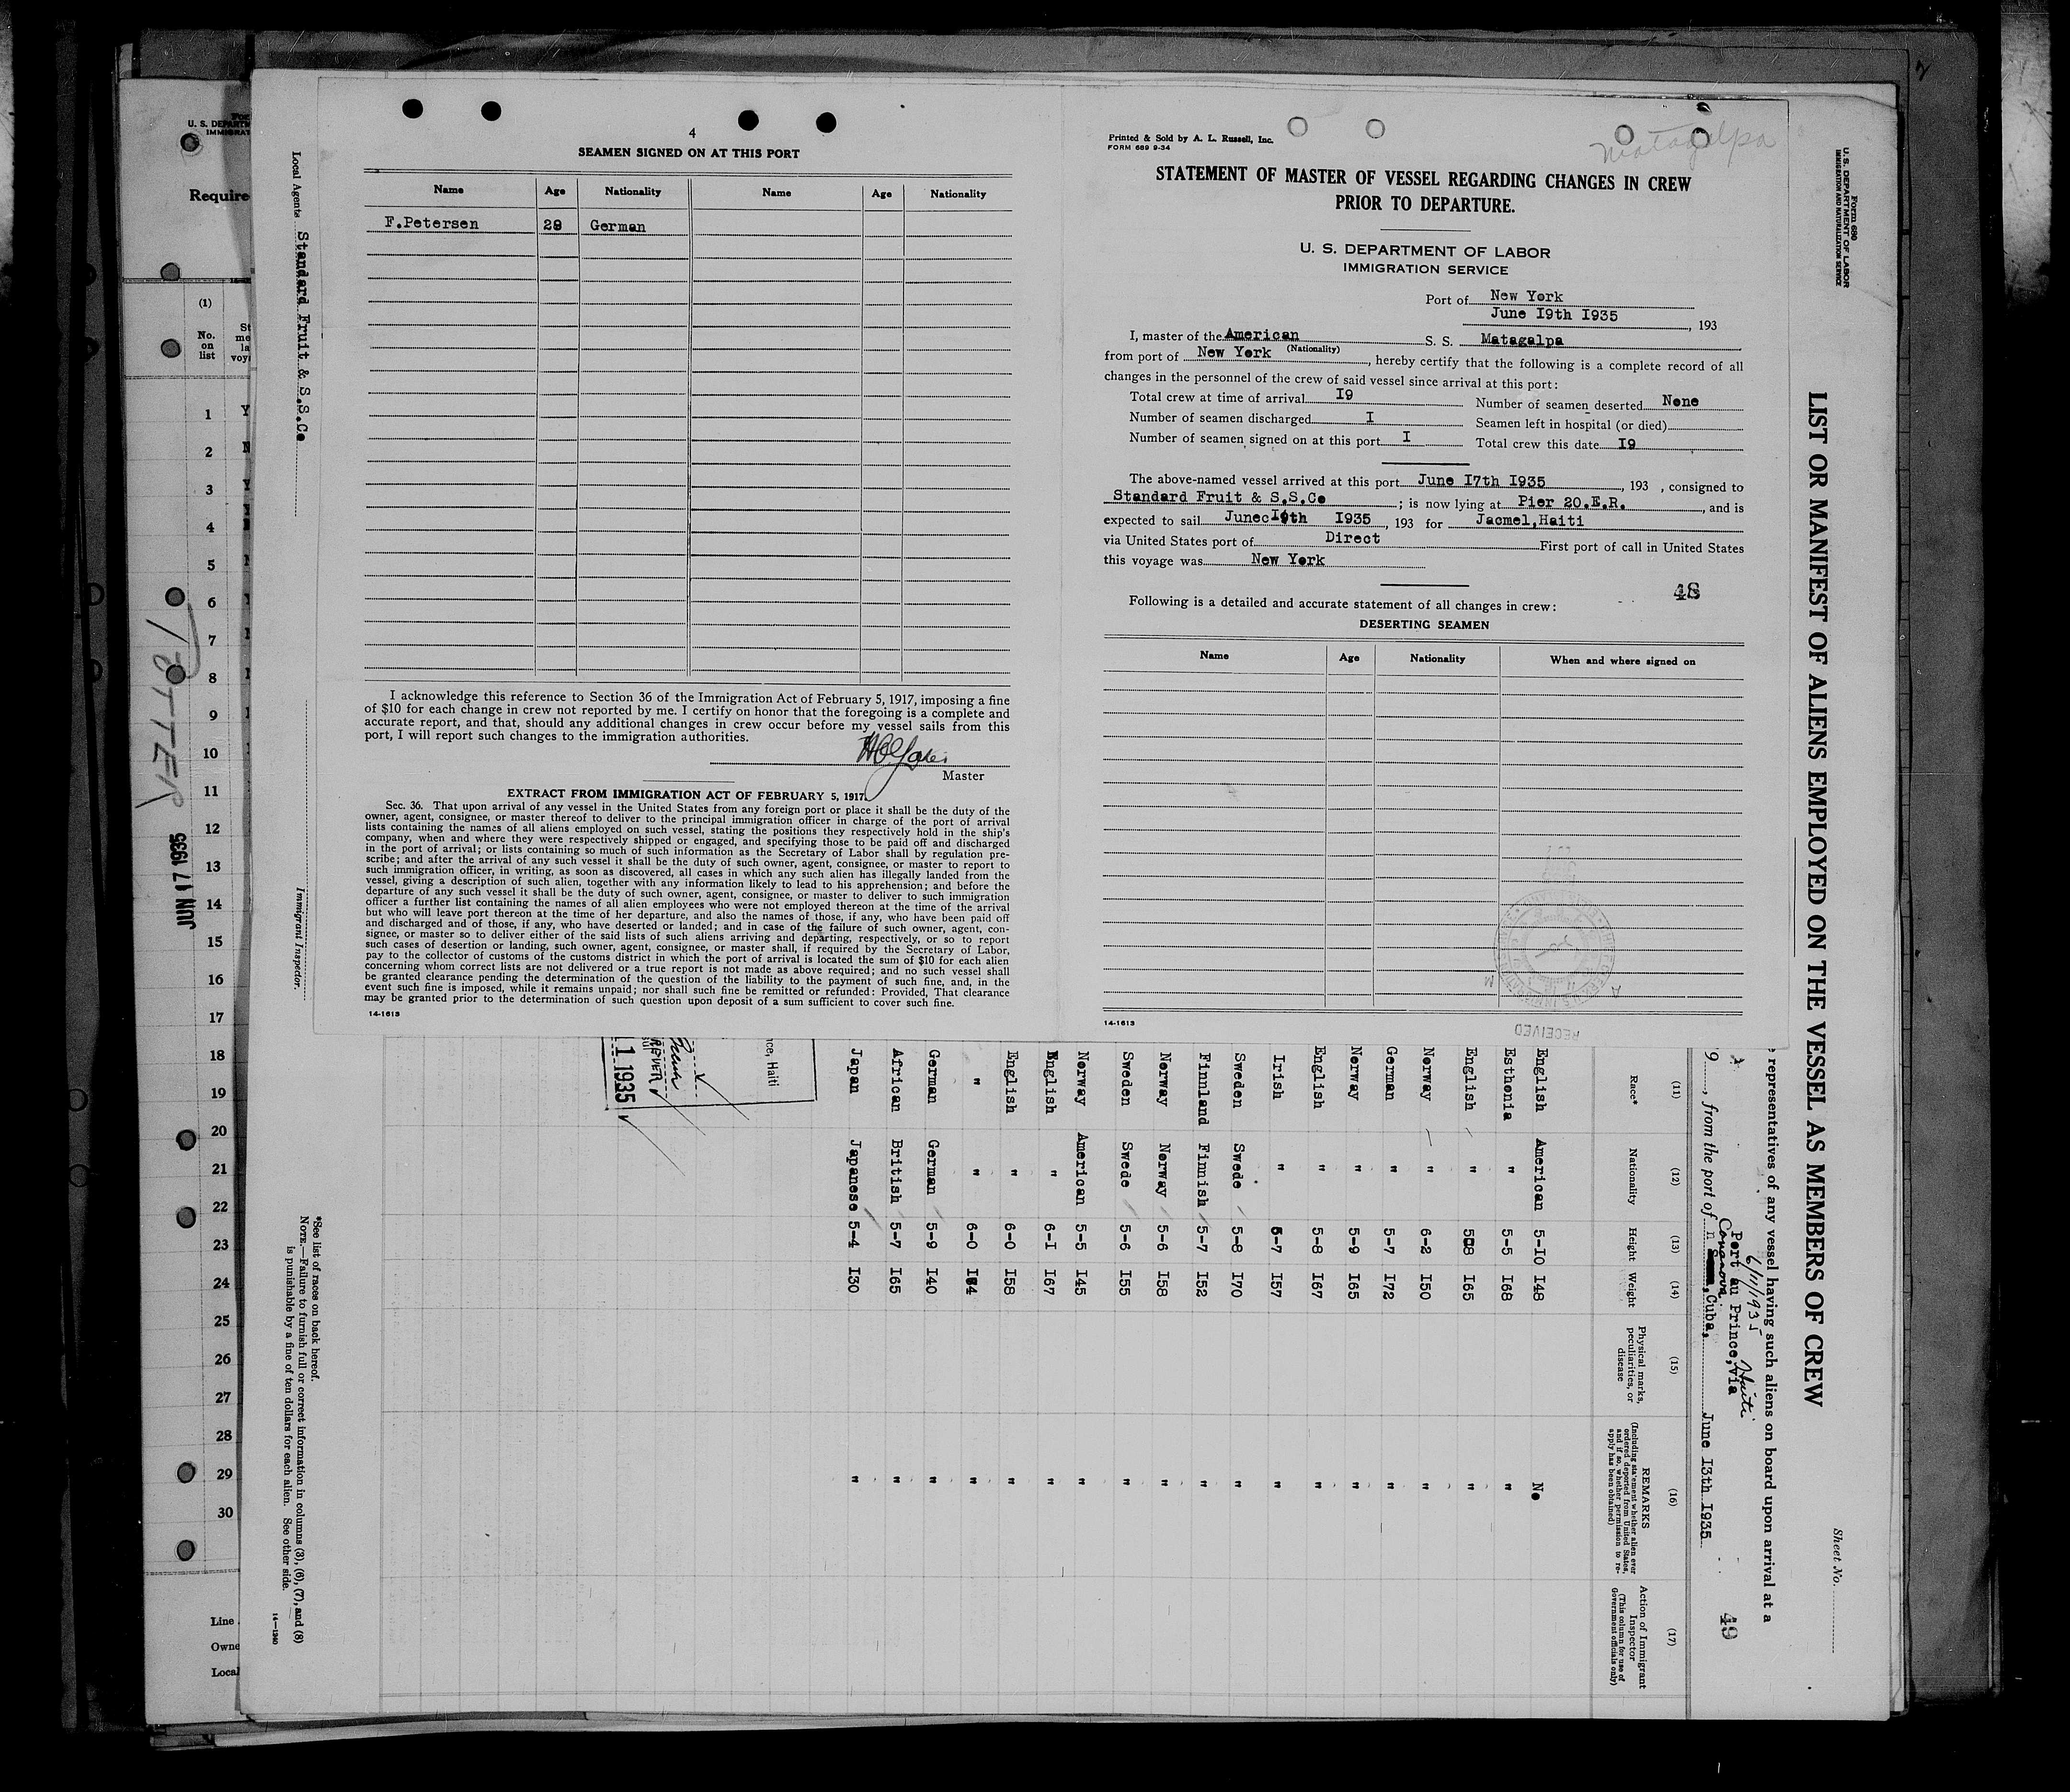 4
SEAMEN SIGNED ON AT THIS PORT
Name Age Nationality Name Age Nationality
F.Petersen 28 German
I acknowledge this reference to Section 36 of the Immigration Act of February 5, 1917, imposing a fine
of $10 for each change in crew not reported by me. I certify on honor that the foregoing is a complete and
accurate report, and that, should any additional changes in crew occur before my vessel sails from this
port, I will report such changes to the immigration authorities.
Master
EXTRACT FROM IMMIGRATION ACT OF FEBRUARY 5, 1917.
Sec. 36. That upon arrival of any vessel in the United States from any foreign port or place it shall be the duty of the
owner, agent, consignee, or master thereof to deliver to the principal immigration officer in charge of the port of arrival
lists containing the names of all aliens employed on such vessel, stating the positions they respectively hold in the ship's
company, when and where they were respectively shipped or engaged, and specifying those to be paid off and discharged
in the port of arrival; or lists containing so much of such information as the Secretary of Labor shall by regulation pre-
scribe; and after the arrival of any such vessel it shall be the duty of such owner, agent, consignee, or master to report to
such immigration officer, in writing, as soon as discovered, all cases in which any such alien has illegally landed from the
vessel, giving a description of such alien, together with any information likely to lead to his apprehension; and before the
departure of any such vessel it shall be the duty of such owner, agent, consignee, or master to deliver to such immigration
officer a further list containing the names of all alien employees who were not employed thereon at the time of the arrival
but who will leave port thereon at the time of her departure, and also the names of those, if any, who have been paid off
and discharged and of those, if any, who have deserted or landed; and in case of the failure of such owner, agent, con-
signee, or master so to deliver either of the said lists of such aliens arriving and departing, respectively, or so to report
such cases of desertion or landing, such owner, agent, consignee, or master shall, if required by the Secretary of Labor,
pay to the collector of customs of the customs district in which the port of arrival is located the sum of $10 for each alien
concerning whom correct lists are not delivered or a true report is not made as above required; and no such vessel shall
be granted clearance pending the determination of the question of the liability to the payment of such fine, and, in the
event such fine is imposed, while it remains unpaid; nor shall such fine be remitted or refunded: Provided, That clearance
may be granted prior to the determination of such question upon deposit of a sum sufficient to cover such fine.
14-1613
Printed & Sold by A. L. Russell, Inc.
FORM 689 9-34
Matagalpa
STATEMENT OF MASTER OF VESSEL REGARDING CHANGES IN CREW
PRIOR TO DEPARTURE.
U. S. DEPARTMENT OF LABOR
IMMIGRATION SERVICE
Port of New York
June I9th I935, 193
I, master of the American S. S. Matagalpa
from port of New York (Nationality), hereby certify that the following is a complete record of all
changes in the personnel of the crew of said vessel since arrival at this port:
Total crew at time of arrival I9 Number of seamen deserted None
Number of seamen discharged I Seamen left in hospital (or died)
Number of seamen signed on at this port I Total crew this date I9
The above-named vessel arrived at this port June I7th I935, 193 , consigned to
Standard Fruit & S.S.Co ; is now lying at Pier 20.E.R. , and is
expected to sail Junec I9th I935, 193 for Jacmel,Haiti
via United States port of Direct First port of call in United States
this voyage was New York
48
Following is a detailed and accurate statement of all changes in crew:
DESERTING SEAMEN
Name Age Nationality When and where signed on
14-1613
RECEIVED
Form 680
U. S. DEPARTMENT OF LABOR
IMMIGRATION AND NATURALIZATION SERVICE
LIST OR MANIFEST OF ALIENS EMPLOYED ON THE VESSEL AS MEMBERS OF CREW
Sheet No.
representatives of any vessel having such aliens on board upon arrival at a
6/11/1935
Port au Prince,via Haiti
9, from the port of Cuba, June I3th I935
49
(11) (12) (13) (14) (15) (16) (17)
Race* Nationality Height Weight Physical marks, peculiarities, or disease REMARKS (Including statement whether alien ever ordered deported from United States, and if so, whether permission to re-apply has been obtained) Action of Immigrant Inspector (This column for use of Government officials only)
English American 5-10 I48 No
Esthonia " 5-5 I68 "
English " 508 I65 "
Norway " 6-2 I50 "
German " 5-7 I72 "
Norway " 5-9 I65 "
English " 5-8 I67 "
Irish " 5-7 I57 "
Sweden Swede 5-8 I70 "
Finnland Finnish 5-7 I52 "
Norway Norway 5-6 I58 "
Sweden Swede 5-6 I55 "
Norway American 5-5 I45 "
English " 6-I I67 "
English " 6-0 I58 "
" " 6-0 I84 "
German German 5-9 I40 "
African British 5-7 I65 "
Japan Japanese 5-4 I30 "
ce, Haiti
1 1935
Local Agents Standard Fruit & S.S.Co
Immigrant Inspector.
*See list of races on back hereof.
NOTE.—Failure to furnish full or correct information in columns (3), (6), (7), and (8)
is punishable by a fine of ten dollars for each alien. See other side.
14-1240
U. S. DEPARTM
IMMIGRAT
Require
(1)
No.
on
list
1 Y
2 N
3 Y
4
5
6
7
8
9
10
11
12
13
14
15
16
17
18
19
20
21
22
23
24
25
26
27
28
29
30
Line
Owne
Local
POTTER
JUN 17 1935